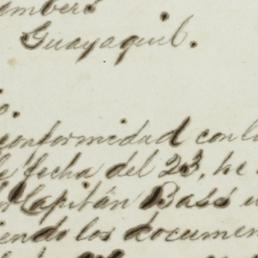 Guayaquil.
conformidad con
fecha del 23, he
Capitán Bass
los documen